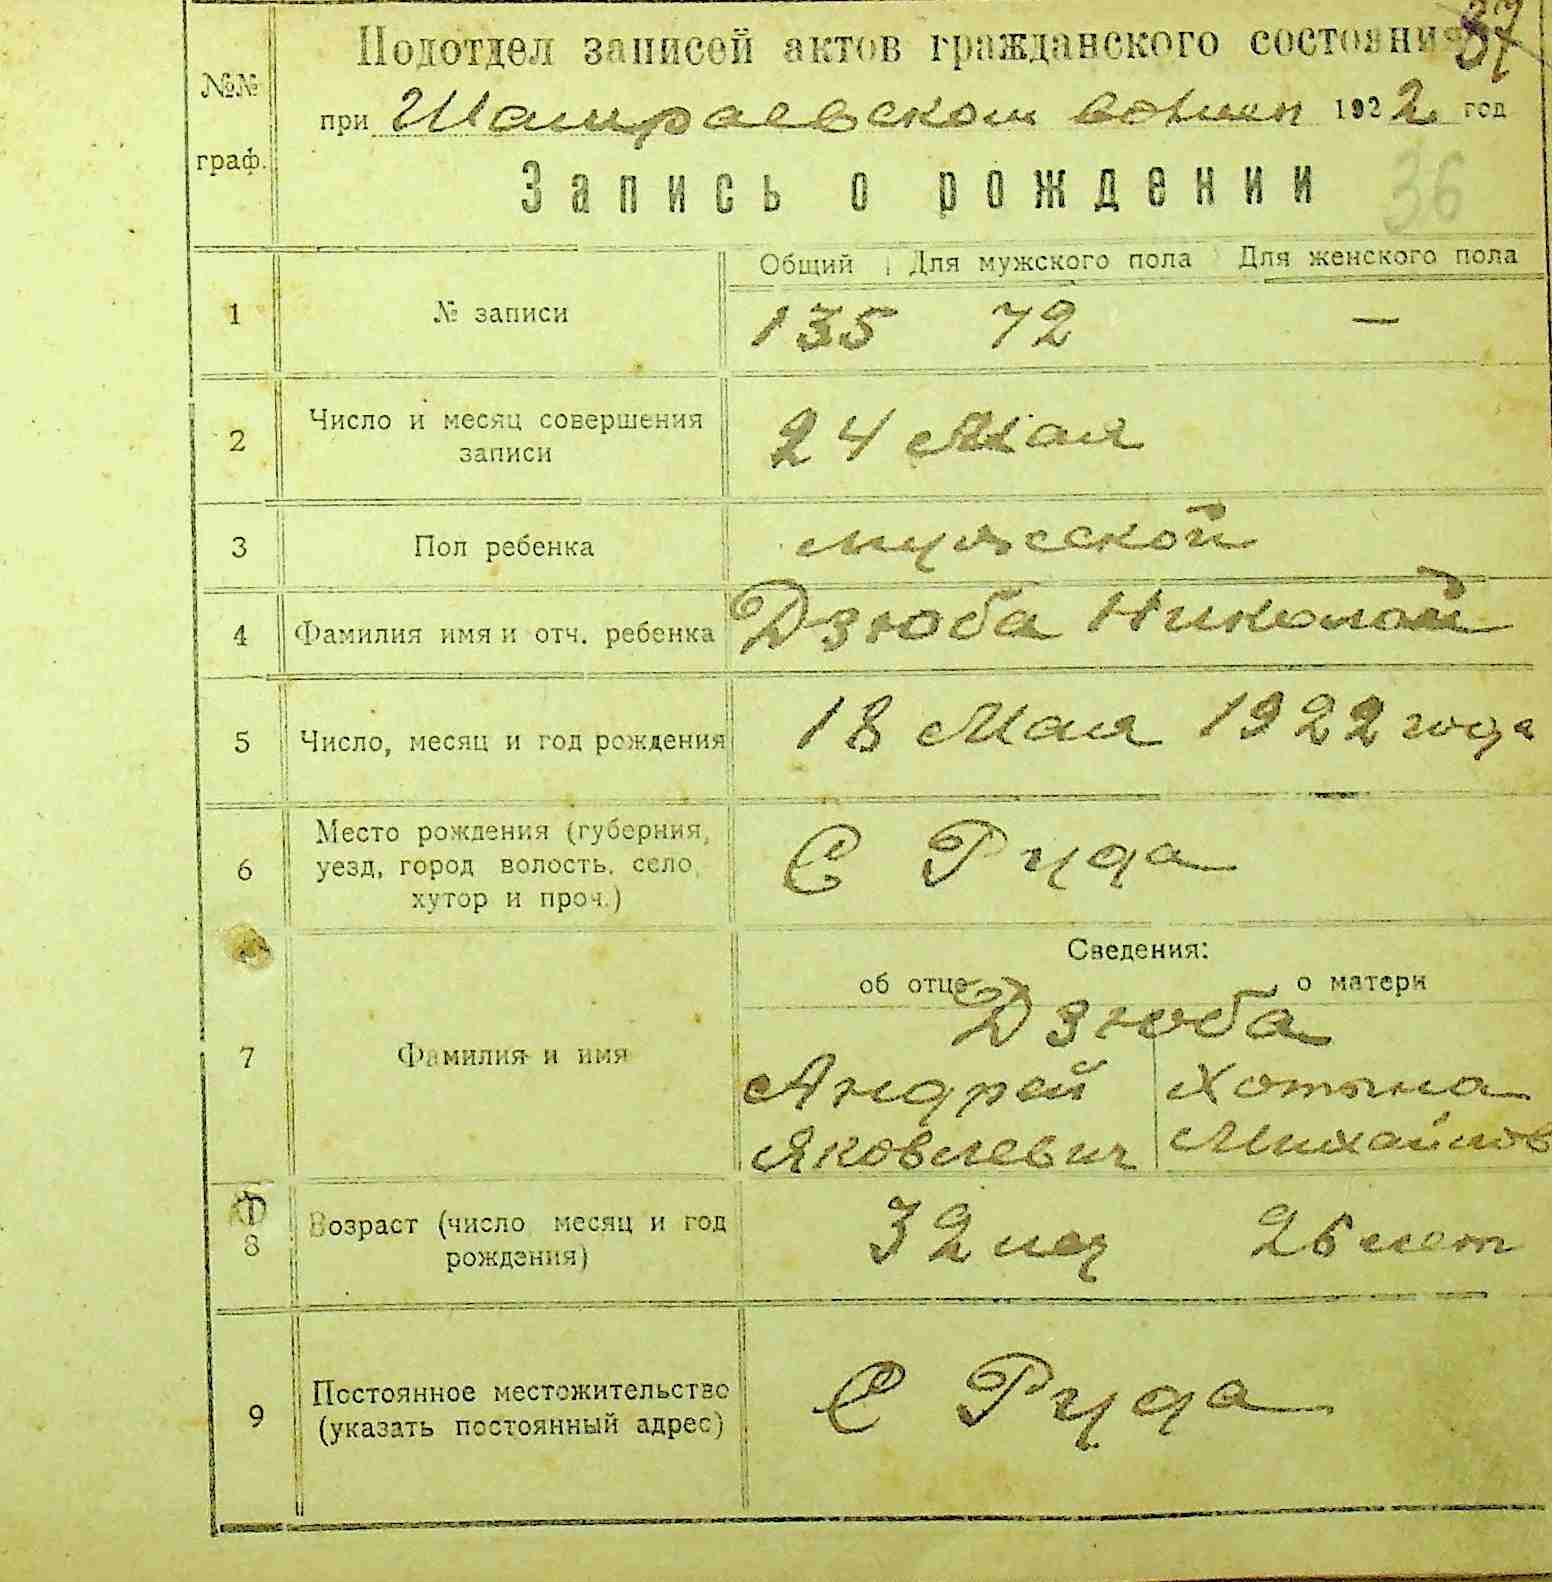 37
Подотдел записей актов гражданского состояни
№№ граф.
при Шамраевском 1922 год
Запись о рождении
36
Общий Для мужского пола Для женского пола
1 № записи 135 72 —
2 Число и месяц совершения
записи
24 Мая
3 Пол ребенка мужской
4 Фамилия имя и отч. ребенка Дзюба Николай
5 Число, месяц и год рождения 18 Мая 1922 года
6 Место рождения (губерния,
уезд, город волость, село,
хутор и проч.)
С Руда
Сведения:
об отце о матери
7 Фамилия и имя
Дзюба
Андрей Хотына
Яковлевич Михайлов
8 Возраст (число, месяц и год
рождения)
32 лет 26 лет
9 Постоянное местожительство
(указать постоянный адрес)
С Руда